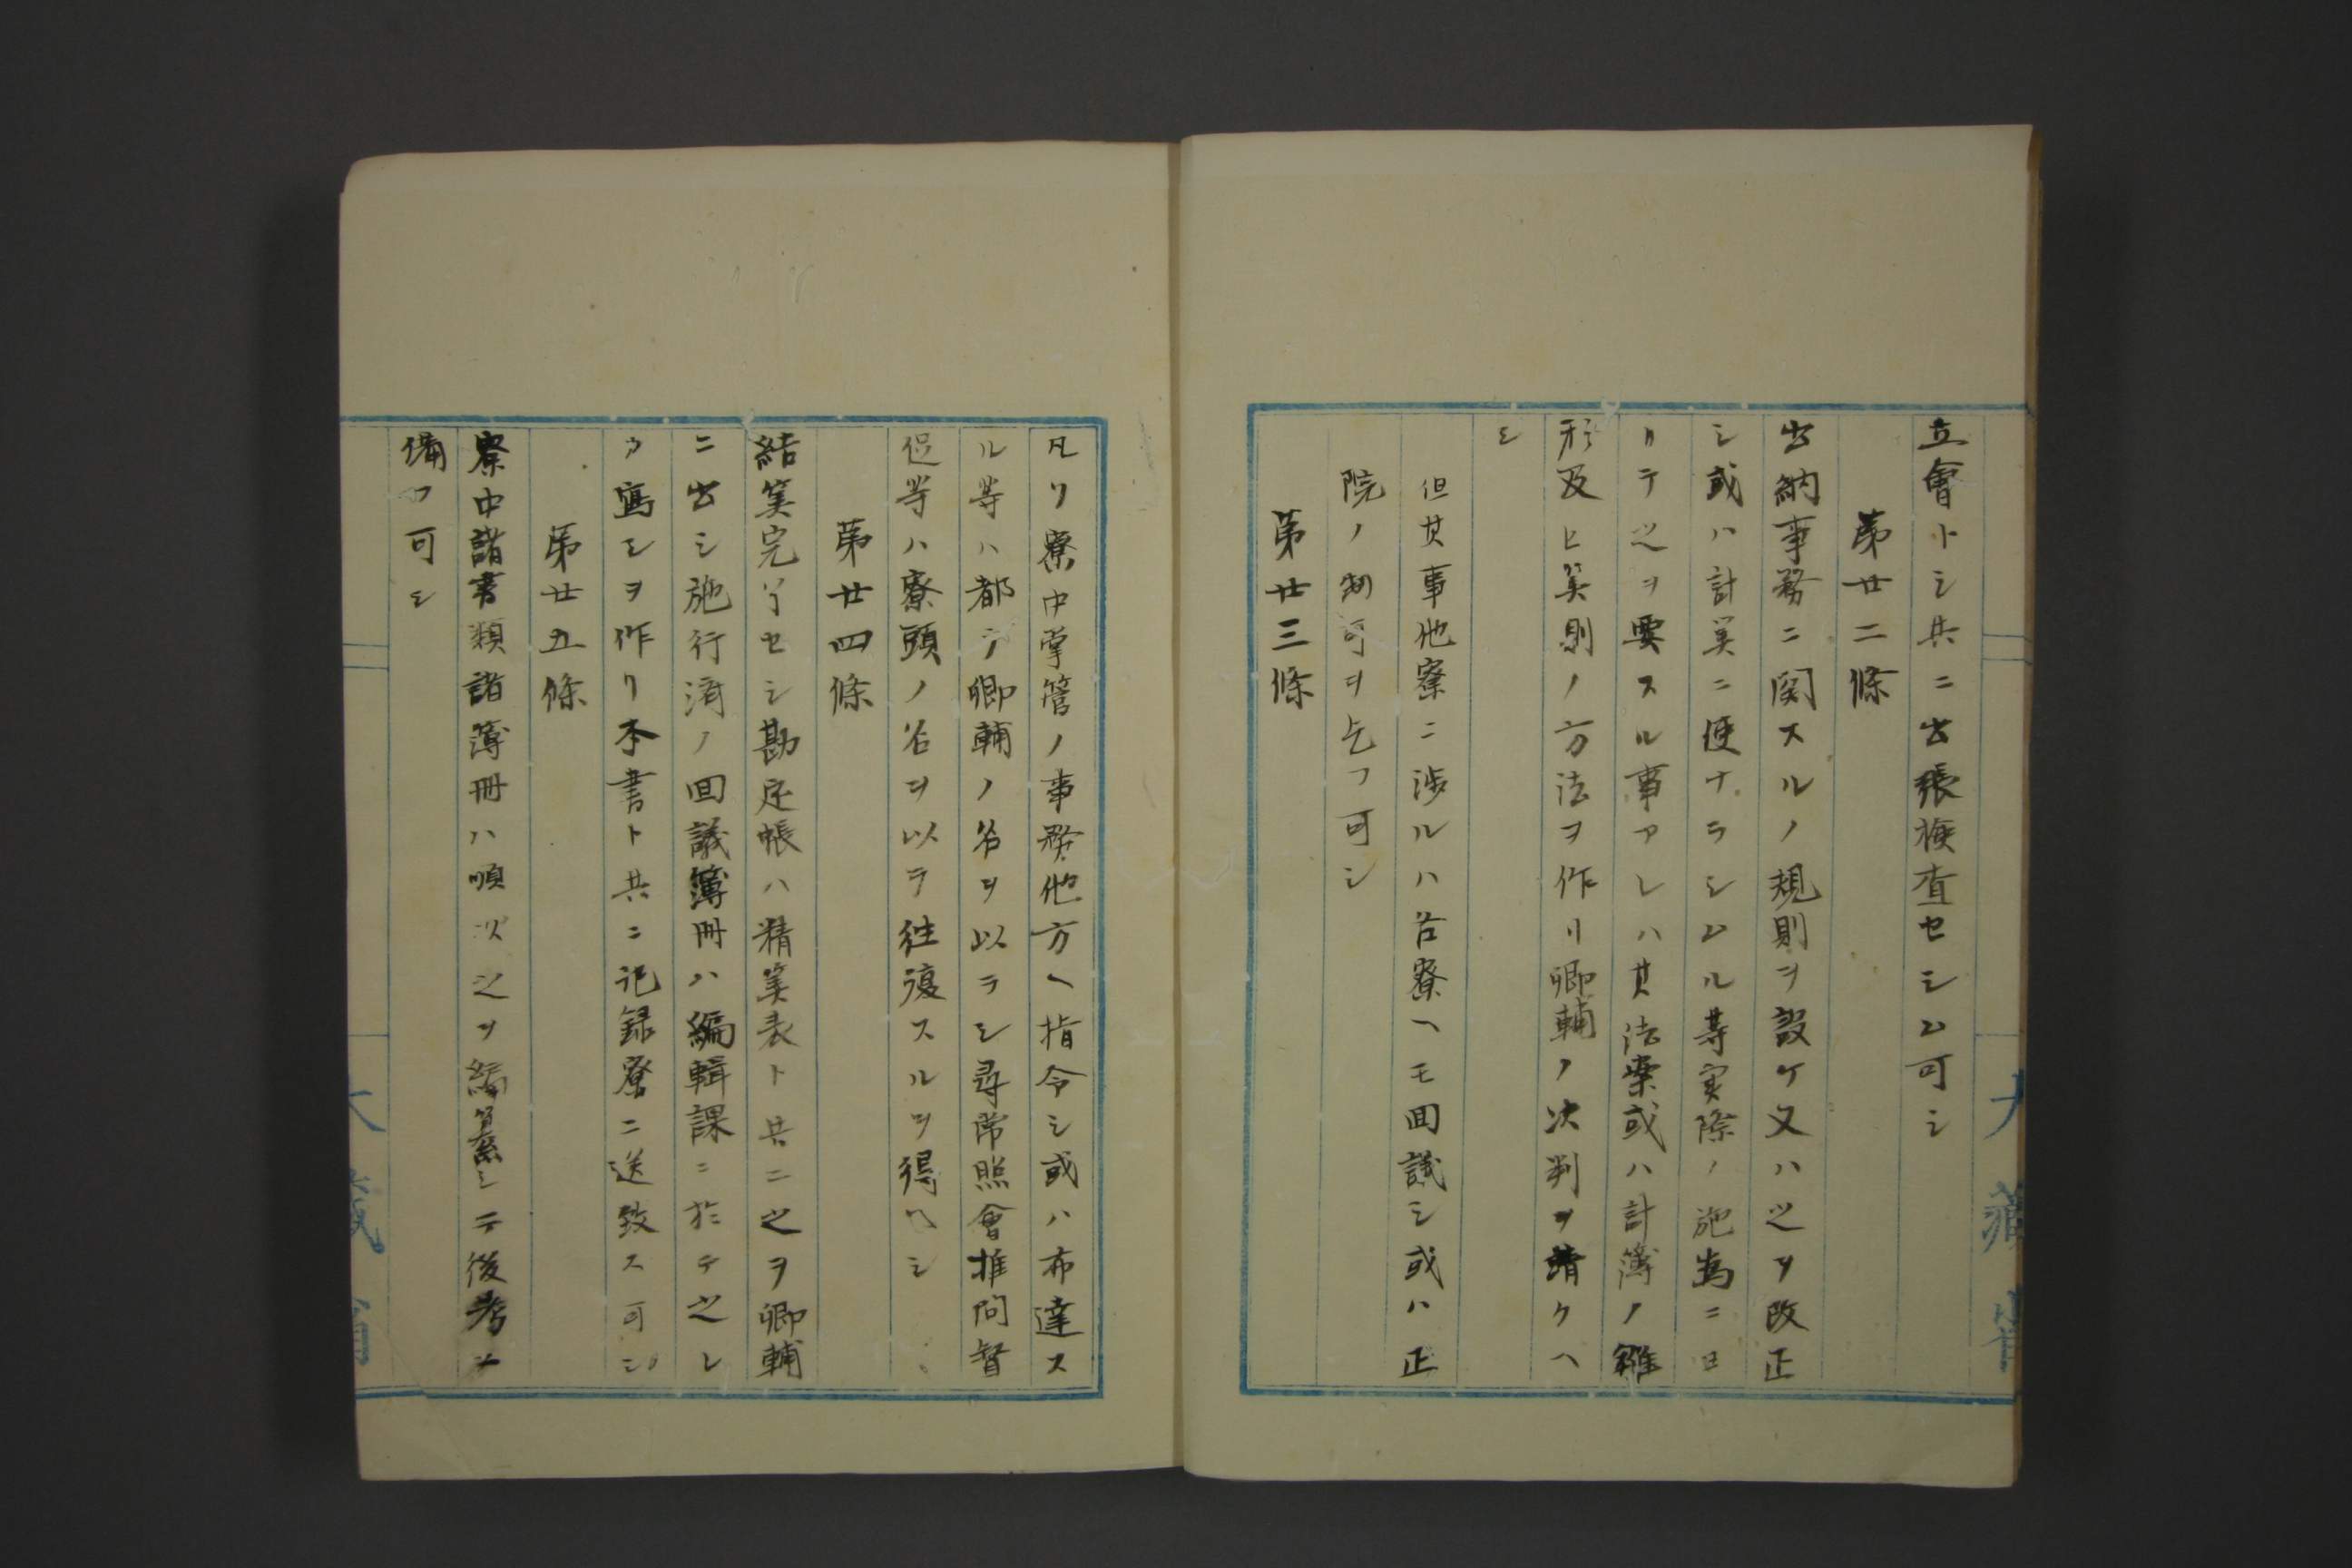 立會トシ共ニ出張檢査セシム可シ
第廿二條
出納事務ニ関スルノ規則ヲ設ケ又ハ之ヲ改正
シ或ハ計算ニ便ナラシムル等実際ノ施為ニヨ
リテ之ヲ要スル事アレハ其法案或ハ計簿ノ雛
形及ヒ算則ノ方法ヲ作リ卿輔ノ决判ヲ請クヘ
シ
但其事他寮ニ渉ルハ各寮ヘモ回議シ或ハ正
院ノ制可ヲ乞フ可シ
第廿三條
凡リ寮中掌管ノ事務他方ヘ指令シ或ハ布達ス
ル等ハ都テ卿輔ノ名ヲ以テシ尋常照會推問督
促等ハ寮頭ノ名ヲ以テ往復スルヲ得ヘシ
第廿四條
結算完了セシ勘定帳ハ精算表ト共ニ之ヲ卿輔
ニ出シ施行済ノ回議簿冊ハ編輯課ニ於テ之レ
カ寫シヲ作リ本書ト共ニ記録寮ニ送致ス可シ
第廿五條
寮中諸書類諸簿冊ハ順次之ヲ編纂シテ後考ニ
備フ可シ
大藏省
大藏省